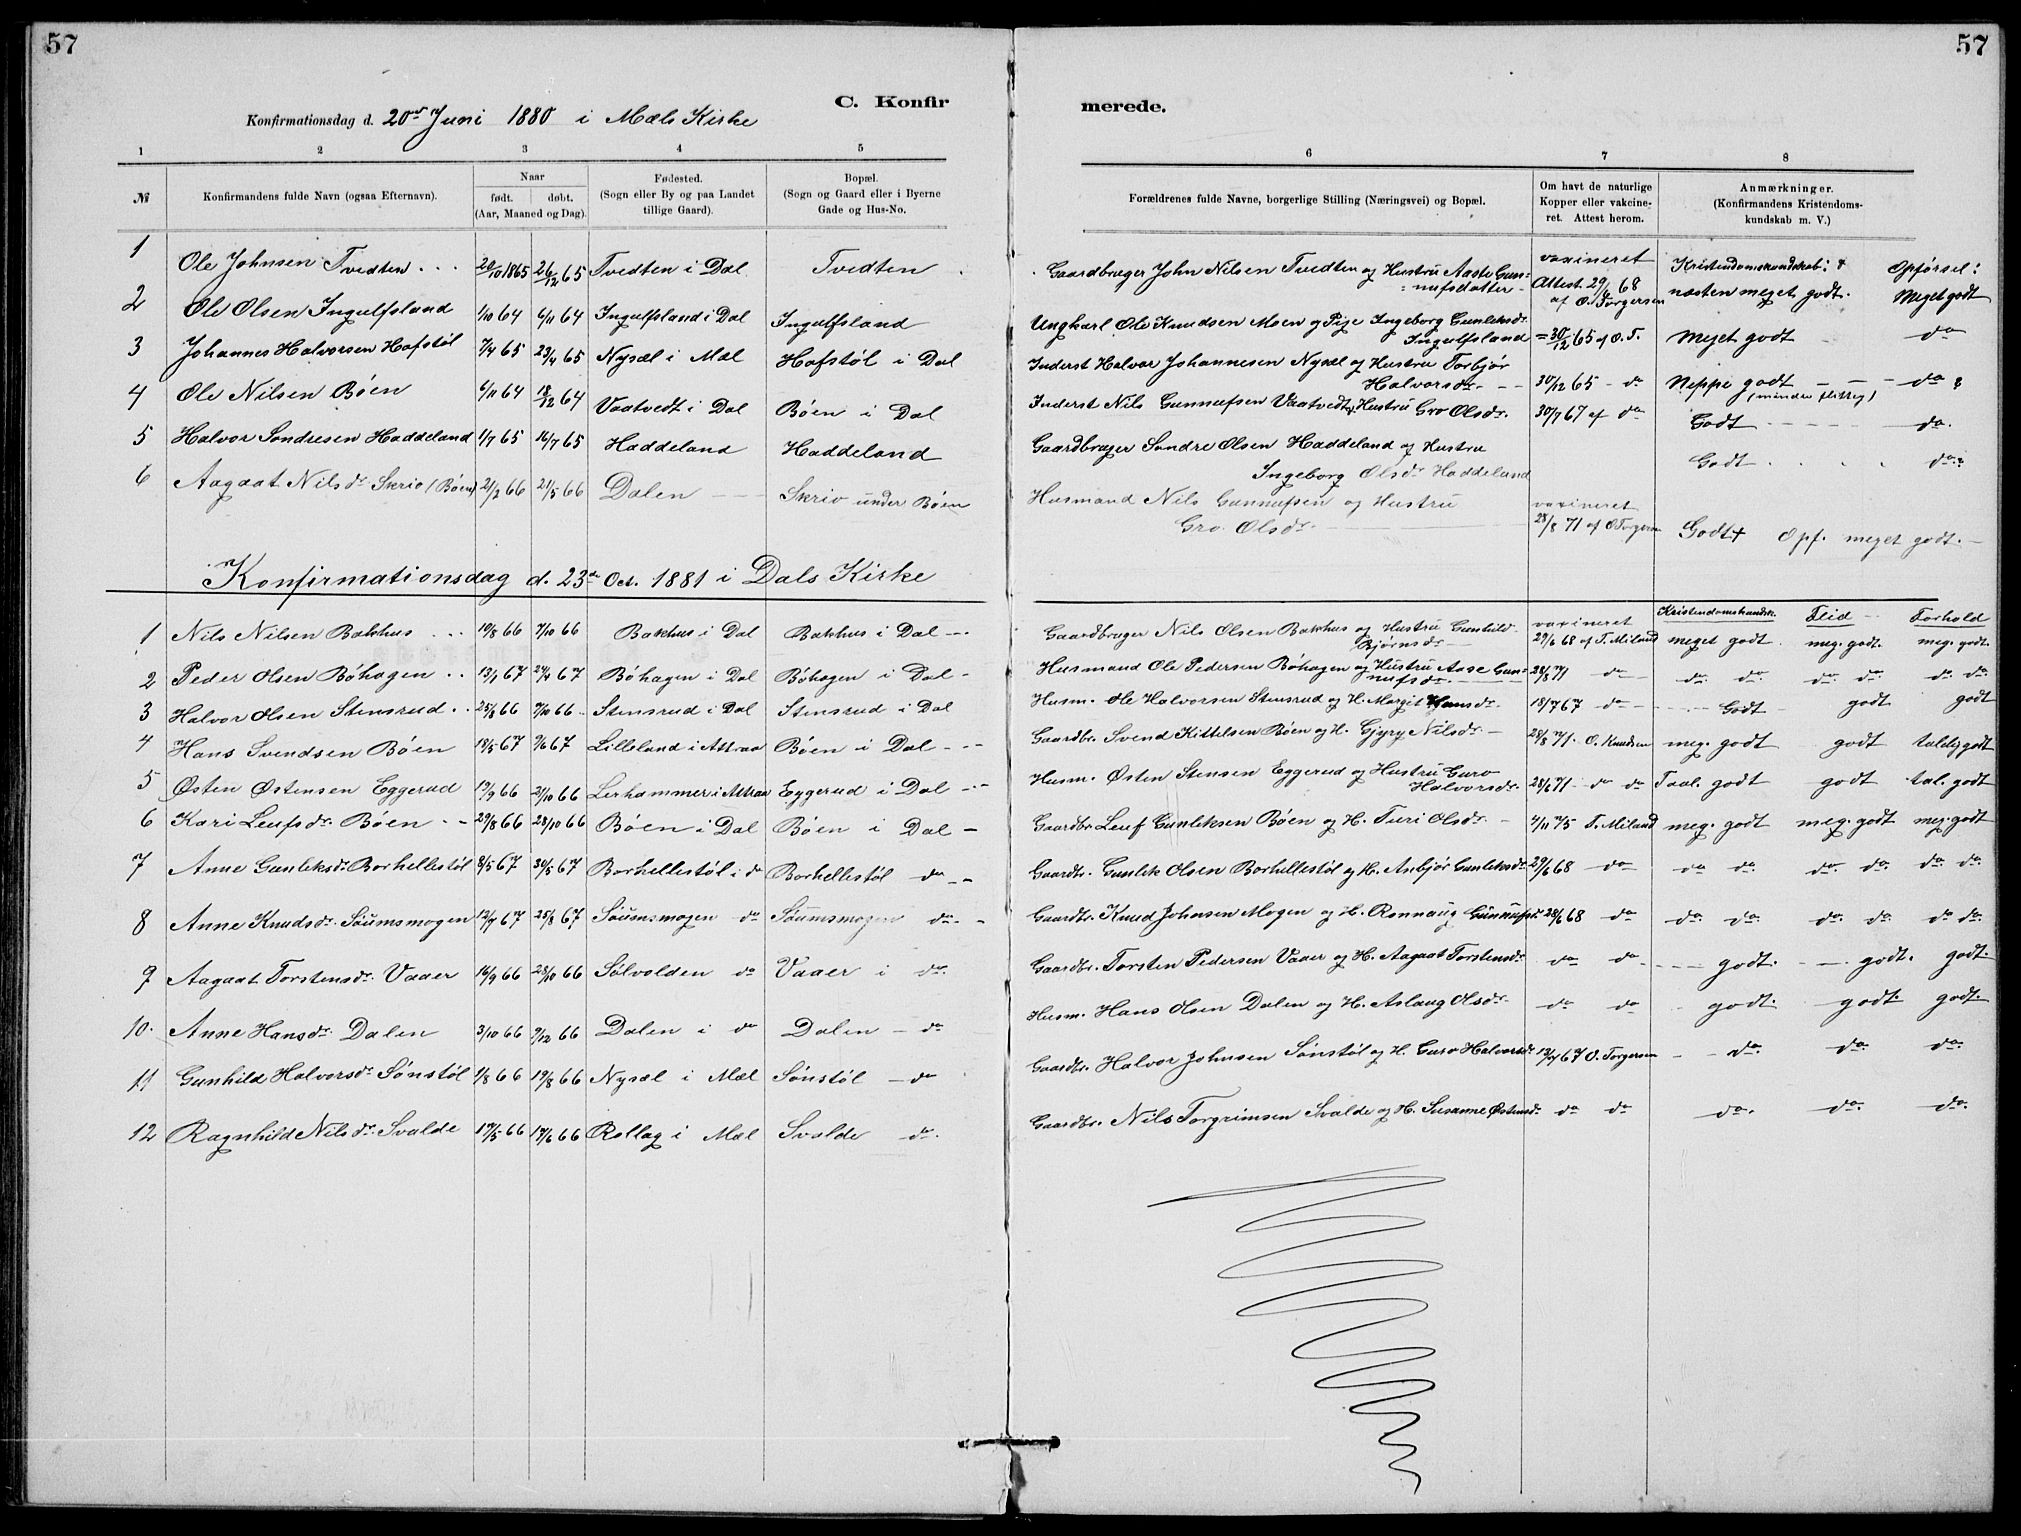 57
57
C. Konfir
merede.
Konfirmationsdag d. 20de Juni 1880 i Mæls Kirke
1 2 3 4 5
6 7 8
№ Konfirmandens fulde Navn (ogsaa Efternavn). Naar født. døbt. (Aar, Maaned og Dag). Fødested. (Sogn eller By og paa Landet tillige Gaard). Bopæl. (Sogn og Gaard eller i Byerne Gade og Hus-No.
Forældrenes fulde Navne, borgerlige Stilling (Næringsvei) og Bopæl. Om havt de naturlige Kopper eller vakcineret. Attest herom. Anmærkninger. (Konfirmandens Kristendomskundskab m. V.)
1 Ole Johnsen Tvedten 20/10 1865 26/12 65 Tvedten i Dal Tvedten
Gaardbruger John Nilsen Tvedten og Hustru Aaste Gunnufsdatter vaxineret Attest 29/6 68 af O. Torgersen Kristendomskundskab: næsten meget godt. Opførsel: Meget godt
2 Ole Olsen Ingulfsland 1/10 64 6/11 64 Ingulfsland i Dal Ingulfsland
Ungkarl Ole Knudsen Moen og Pige Ingeborg Gunleksdr. Ingulfsland = 30/12 65 af O. T. Meget godt do
3 Johannes Halvorsen Hofstøl 7/4 65 23/4 65 Nysæl i Mæl Hofstøl i Dal
Inderst Halvor Johannesen Nysæl og Hustru Torbjør Halvorsdr. 30/12 65 - do Neppe godt (mindre flittig) do ?
4 Ole Nilsen Bøen 6/11 64 18/12 64 Vaatvedt i Dal Bøen i Dal
Inderst Nils Gunnufsen Vaatvedt, Hustru Gro Olsdr. 30/7 67 af do Godt do.
5 Halvor Sondresen Haddeland 1/7 65 16/7 65 Haddeland Haddeland
Gaardbruger Sondre Olsen Haddeland og Hustru Ingeborg Olsdr Haddeland Godt do ?
6 Aagaat Nilsdr Skrio (Bøen) 21/2 66 21/5 66 Dalen Skrio under Bøen
Husmand Nils Gunnufsen og Hustru Gro Olsdr. vaxineret 28/8 71 af O Torgersen Godt+ Opf. meget godt.
Konfirmationsdag d. 23de Oct. 1881 i Dals Kirke
Kristendomskundsk. Flid Forhold
1 Nils Nilsen Bakhus 19/8 66 7/10 66 Bakhus i Dal Bakhus i Dal
Gaardbruger Nils Olsen Bakhus og Hustru Gunhild Bjørnsdr vaxineret 29/6 68 af T. Miland meget godt meg. godt. meg. godt.
2 Peder Olsen Bøhagen 13/1 67 24/4 67 Bøhagen i Dal Bøhagen i Dal
Husmand Ole Pedersen Bøhagen og Hustru Aase Gunnufsdr. 28/8 71 do do. do. do. do. do. do.
3 Halvor Olsen Stensrud 25/8 66 7/10 66 Stensrud i Dal Stensrud i Dal
Husm. Ole Halvorsen Stensrud og H. Margit Hansdr. 18/7 67 do Godt godt godt
4 Hans Svendsen Bøen 19/5 67 9/6 67 Lilleland i Attraa Bøen i Dal
Gaardbr. Svend Kittelsen Bøen og H. Gjyry Nilsdr. 28/8 71. O. Knudsen meg. godt godt taalelig godt
5 Østen Østensen Eggerud 19/9 66 21/10 66 Lerhammer i Attraa Eggerud i Dal
Husm. Østen Stensen Eggerud og Hustru Guro Halvorsdr. 28/6 71 do do Taal. godt godt tal. godt
6 Kari Leufsdr. Bøen 29/8 66 28/10 66 Bøen i Dal Bøen i Dal
Gaardbr. Leuf Gunleksen Bøen og H. Turi Olsdr. 4/11 75 T. Miland meg. godt meg. godt meg. godt
7 Anne Gunleksdr. Borhellestøl 8/5 67 30/5 67 Borhellestøl i do Borhellestøl do
Gaardbr. Gunlek Olsen Borhellestøl og H. Anbjør Gunleksdr 29/6 68 do do do. do. do. do. do.
8 Anne Knudsdr. Søumsmogen 12/7 67 25/8 67 Søumsmogen do Søumsmogen do
Gaardbr. Knud Johnsen Mogen og H. Rønnaug Gunnufsdr 28/6 68 do do. do. do. do. do do.
9 Aagaat Torstensdr. Vaaer 16/9 66 28/10 66 Sølvolden do Vaaer i do
Gaardbr. Torsten Pedersen Vaaer og H. Aagaat Torstensdr do do godt. godt. godt.
10. Anne Hansdr. Dalen 3/10 66 9/12 66 Dalen i do Dalen do
Husm. Hans Olsen Dalen og H. Aslaug Olsdr. do do godt. godt. godt.
11 Gunhild Halvorsdr. Sønstøl 1/8 66 19/8 66 Nysæl i Mæl Sønstøl do
Gaardbr. Halvor Johnsen Sønstøl og H. Guro Halvorsdr 19/7 67 O. Torgersen do. do. do.
12 Ragnhild Nilsdr. Svalde 17/5 66 17/6 66 Rollag i Mæl Svalde do.
Gaardbr. Nils Torgrimsen Svalde og H. Susanne Østensdr do do do. do. do.